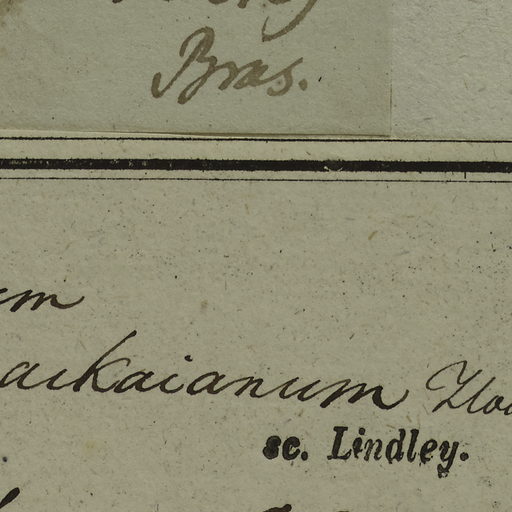 Bras.
um
aikaianum Hoo
sc. Lindley.